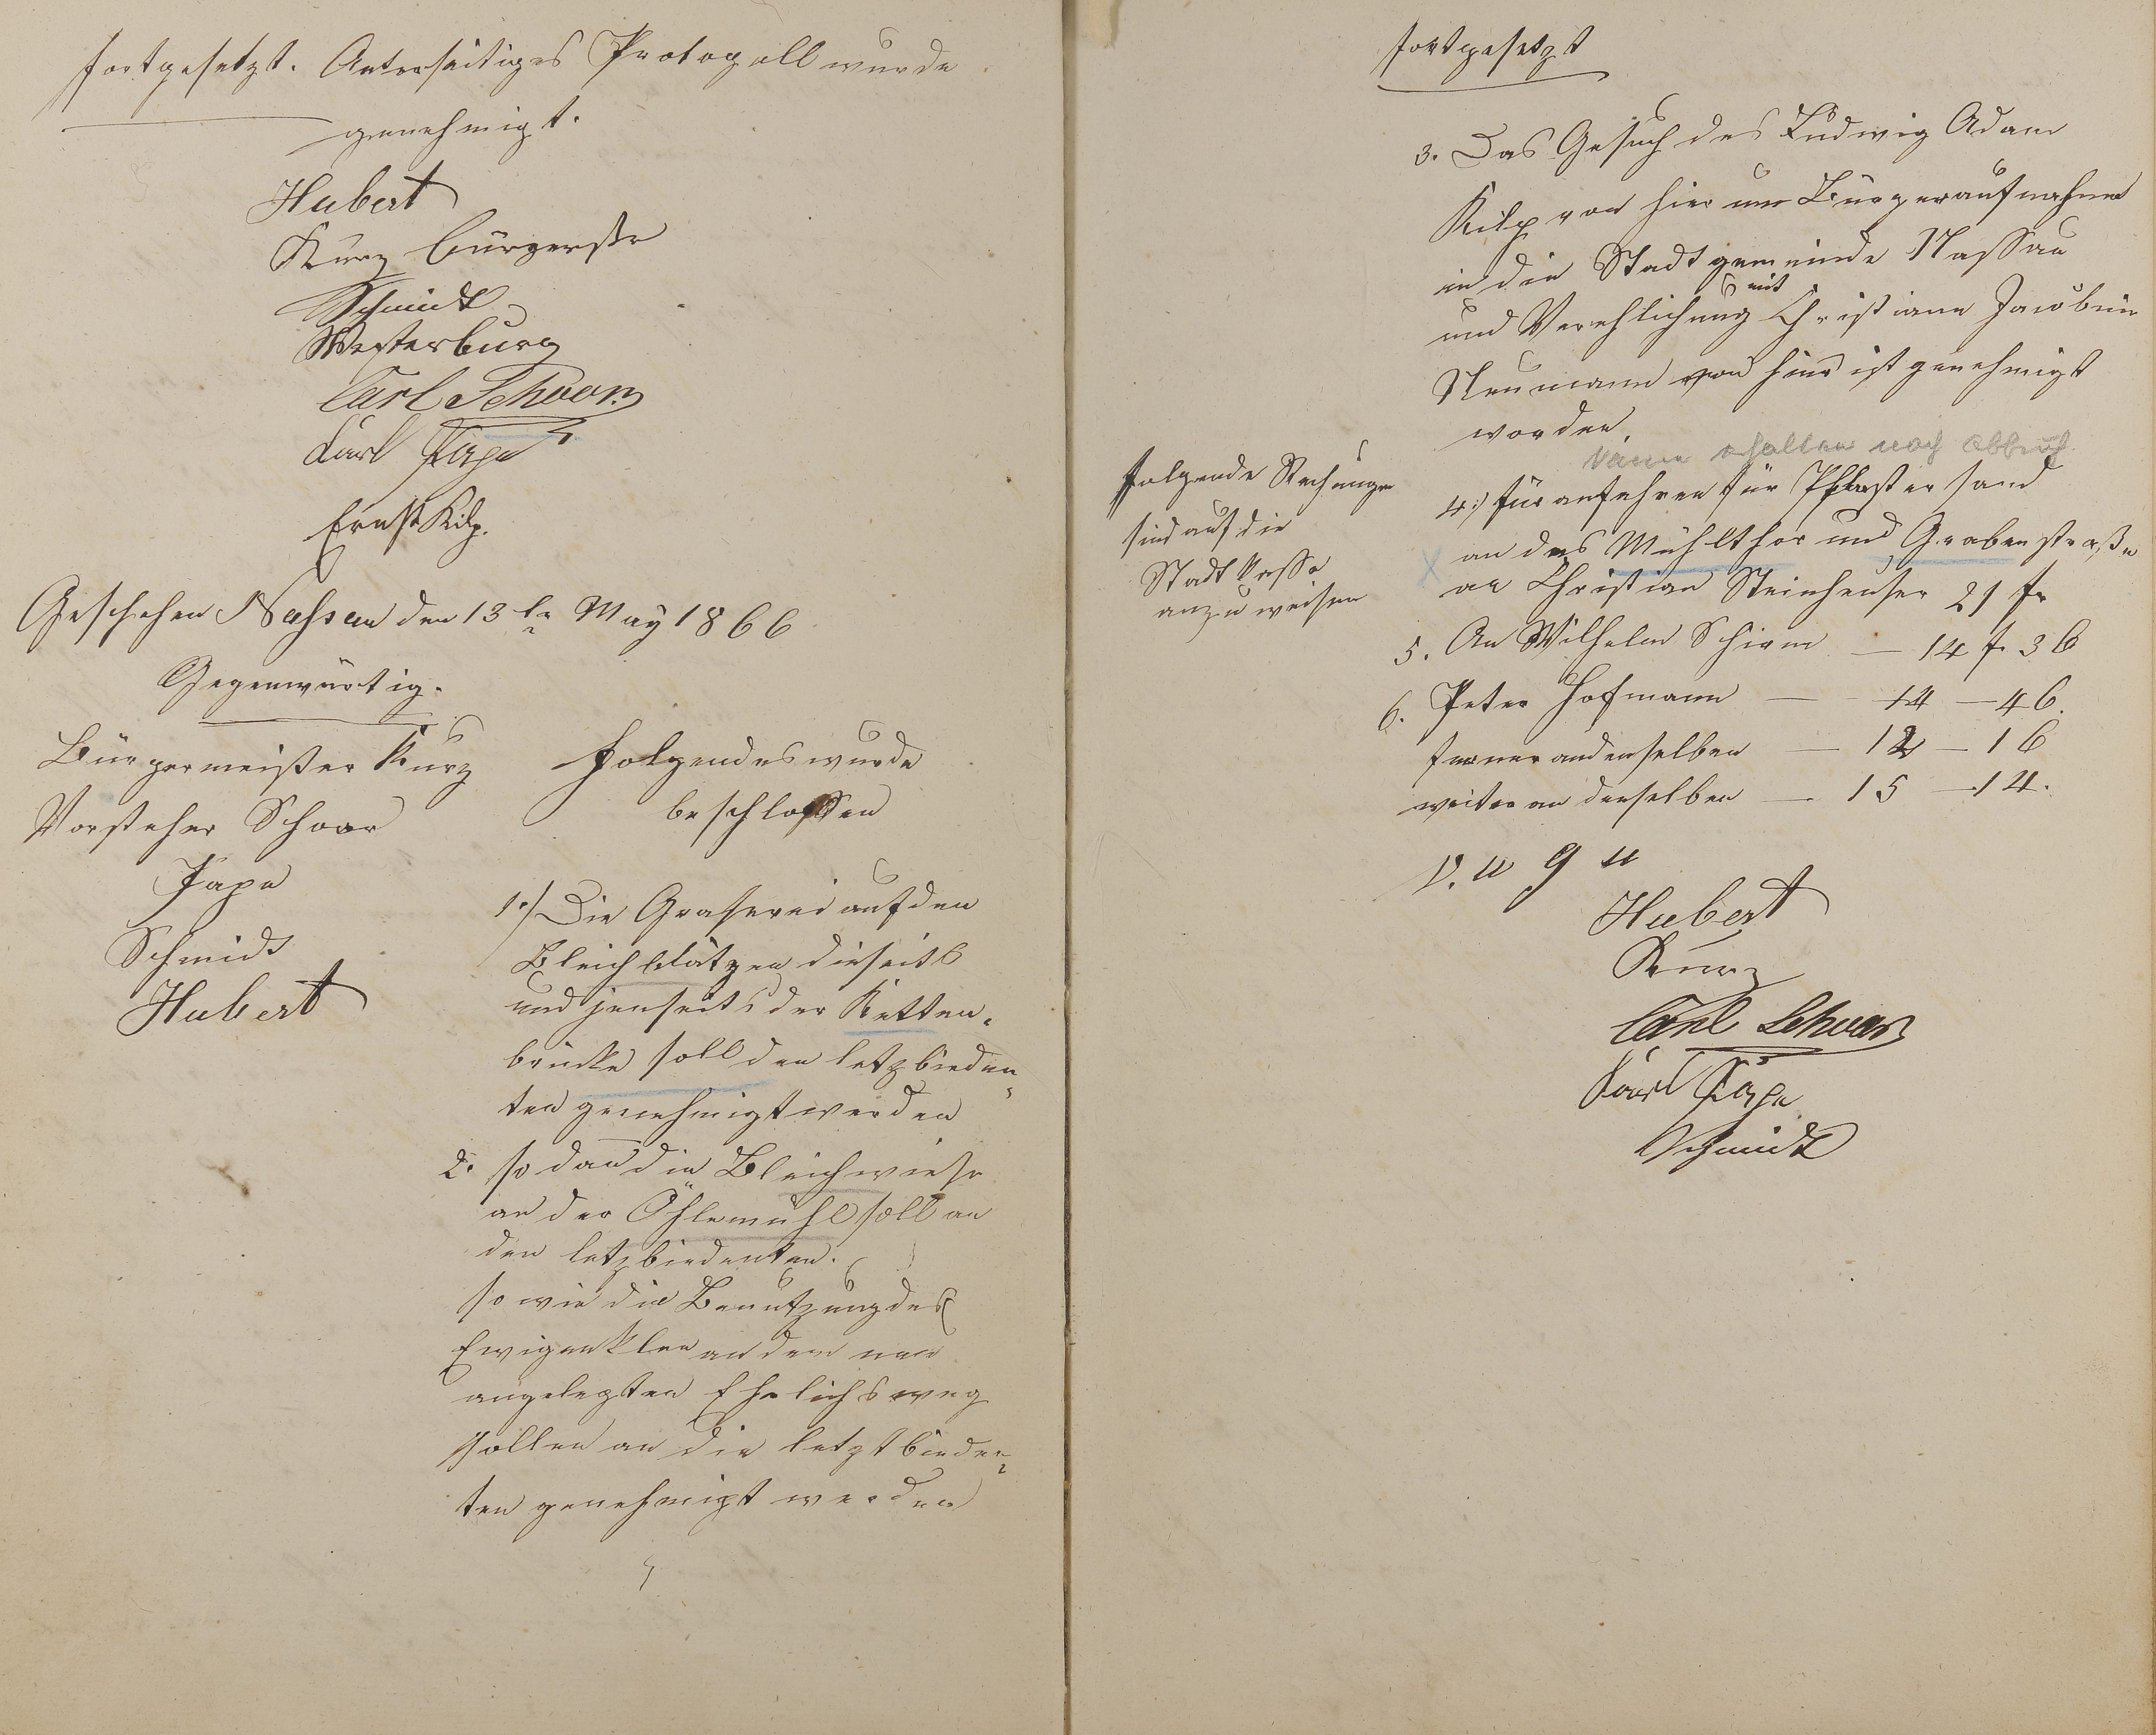 fortgesetzt. Anterseitiges Protogoll wurde
genehmigt.
Hubert
Kurz Bürgerstr
Schmidt
Westerburg
Carl Schoor
Karl Pape
Ernst Kilp.
Geschehen Nassau den 13te May 1866
Gegenwärtig.
Bürgermeister Kurz
Vorsteher Schoor
Pape
Schmidt
Hubert
Folgendes wurde
beschlossen
1.) Die Graserei auf den
Bleichplätzen dieseits
und jenseits der Ketten-
brücke soll den letzbieden-
ten genehmigt werden
2. so dan die Bleichwiese
an der Öhlemühl soll an
den letzbiedenten.
so wie die Benutzung des
Ewigenklee an dem neu
angelegten Ehlichsweg
sollen an die letztbieden-
ten genehmigt werden
fortgesetzt
3. Das Gesuch des Ludwig Adam
Kilp von hier um Bürgeraufnahme
in die Stadtgemeinde Nassau
und Verehlichung mit Christiane Jacobine
Neumann von hier ist genehmigt
worden.
Namen erhalten nach Abbruch
Folgende Rechnungen
sind auf die
Stadtkasse
anzuweisen
4.) für anfahren für Pflastersand
an das Mühlthor und Grabenstraße
an Christian Steinhauser 21 fr
5. An Wilhelm Schirm — 14 f. 36
6. Peter Hofmann — 14 — 46.
ferner an denselben — 12 — 16
weiter an denselben — 15 — 14.
V. u g u
Hubert
Kurz
Carl Schoor
Karl Pape
Schmidt